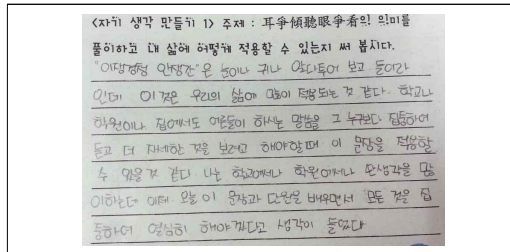 <자기 생각 만들기 1> 주제 : 耳爭傾聽眼爭看의 의미를
풀이하고 내 삶에 어떻게 적용할 수 있는지 써 봅시다.
"이쟁경청 안쟁간"은 눈이나 귀나 앞다투어 보고 들어라
인데 이것은 우리의 삶에 많이 적용되는 것 같다. 학교나
학원이나 집에서도 어른들이 하시는 말씀을 그 누구보다 집중하여
듣고 더 자세한 것을 보려고 해야할때 이 문장을 적용할
수 있을것 같다. 나는 학교에서나 학원에서나 딴생각을 많
이하는데 이제 오늘 이 문장과 단원을 배우면서 모든 것을 집
중하여 열심히 해야겠다고 생각이 들었다